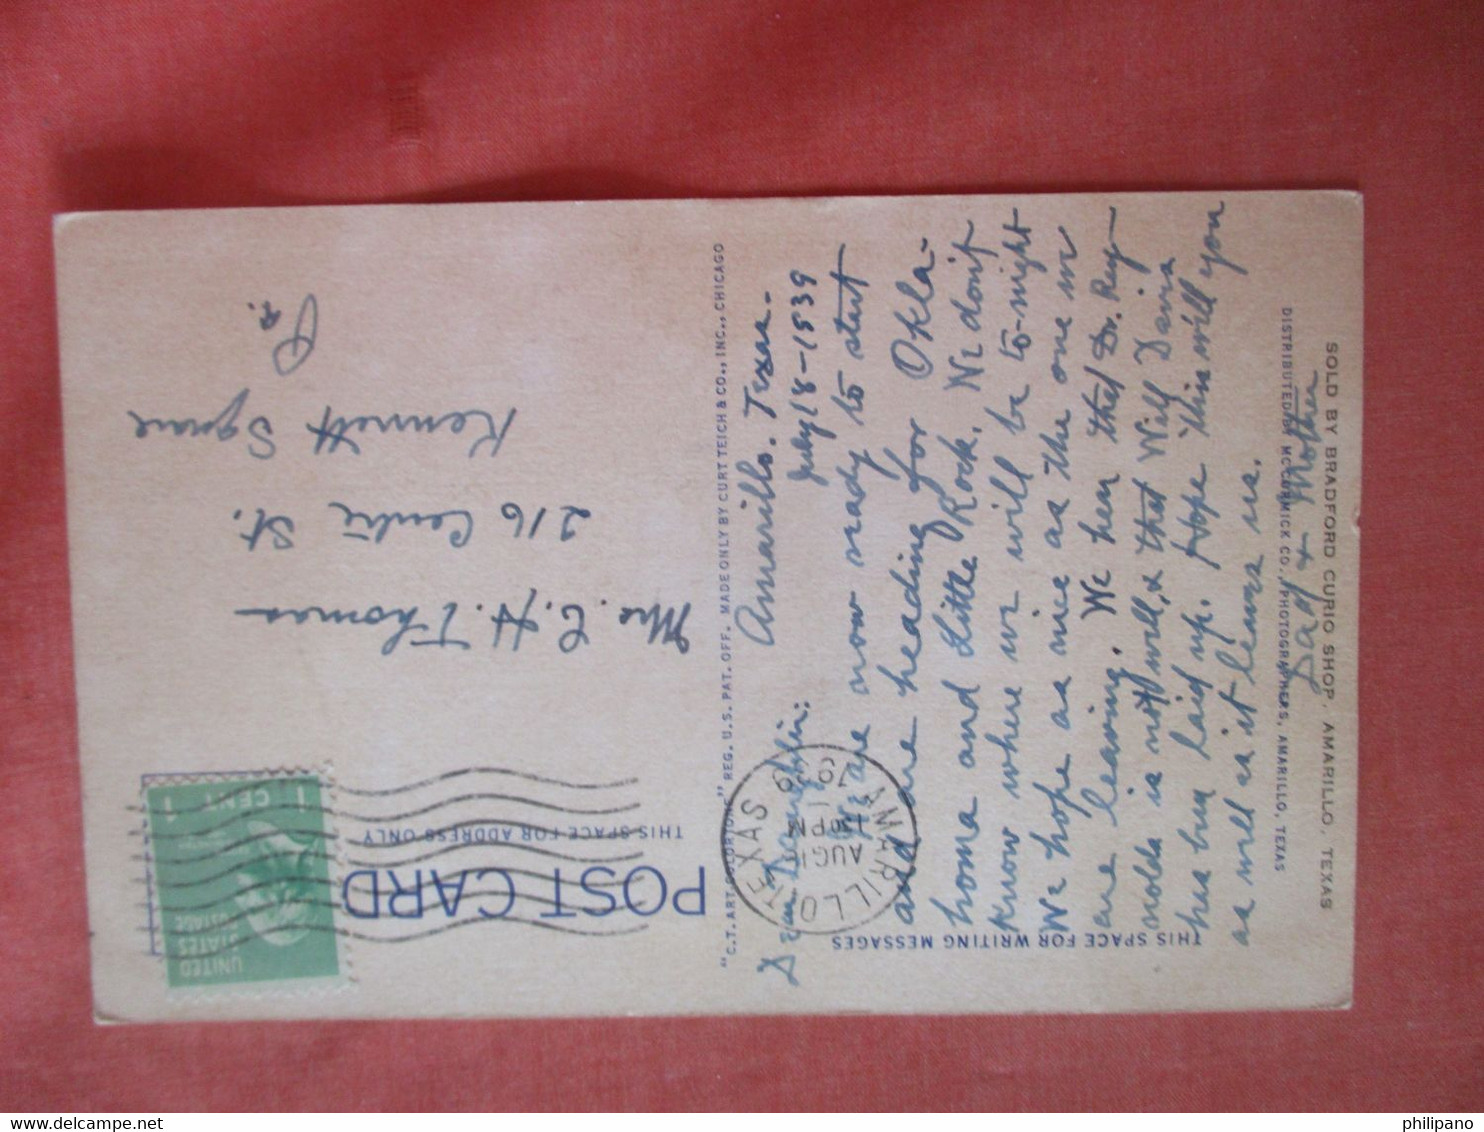 SOLD BY BRADFORD CURIO SHOP, AMARILLO, TEXAS
DISTRIBUTED BY MC CORMICK CO., PHOTOGRAPHERS, AMARILLO, TEXAS
THIS SPACE FOR WRITING MESSAGES
Amarillo. Texas.
July 18-1939
Dear Daughter:
We are now ready to start
and are heading for Okla-
homa and Little Rock. We don't
know where we will be to-night
We hope as nice as the one we
are leaving. We hear that Dr. Rey-
nolds is not well, & that Will Davis
has been laid up. Hope this will you
as well as it leaves us.
Dad & Mother
"C.T. ART-COLORTONE" REG. U.S. PAT. OFF. MADE ONLY BY CURT TEICH & CO., INC., CHICAGO
POST CARD
THIS SPACE FOR ADDRESS ONLY
UNITED
STATES
POSTAGE
1 CENT 1
AMARILLO TEXAS
AUG 1
PM
Mrs. C. H. Thomas
216 Centre St.
Kennett Square
Pa.
philipano
delcampe.net